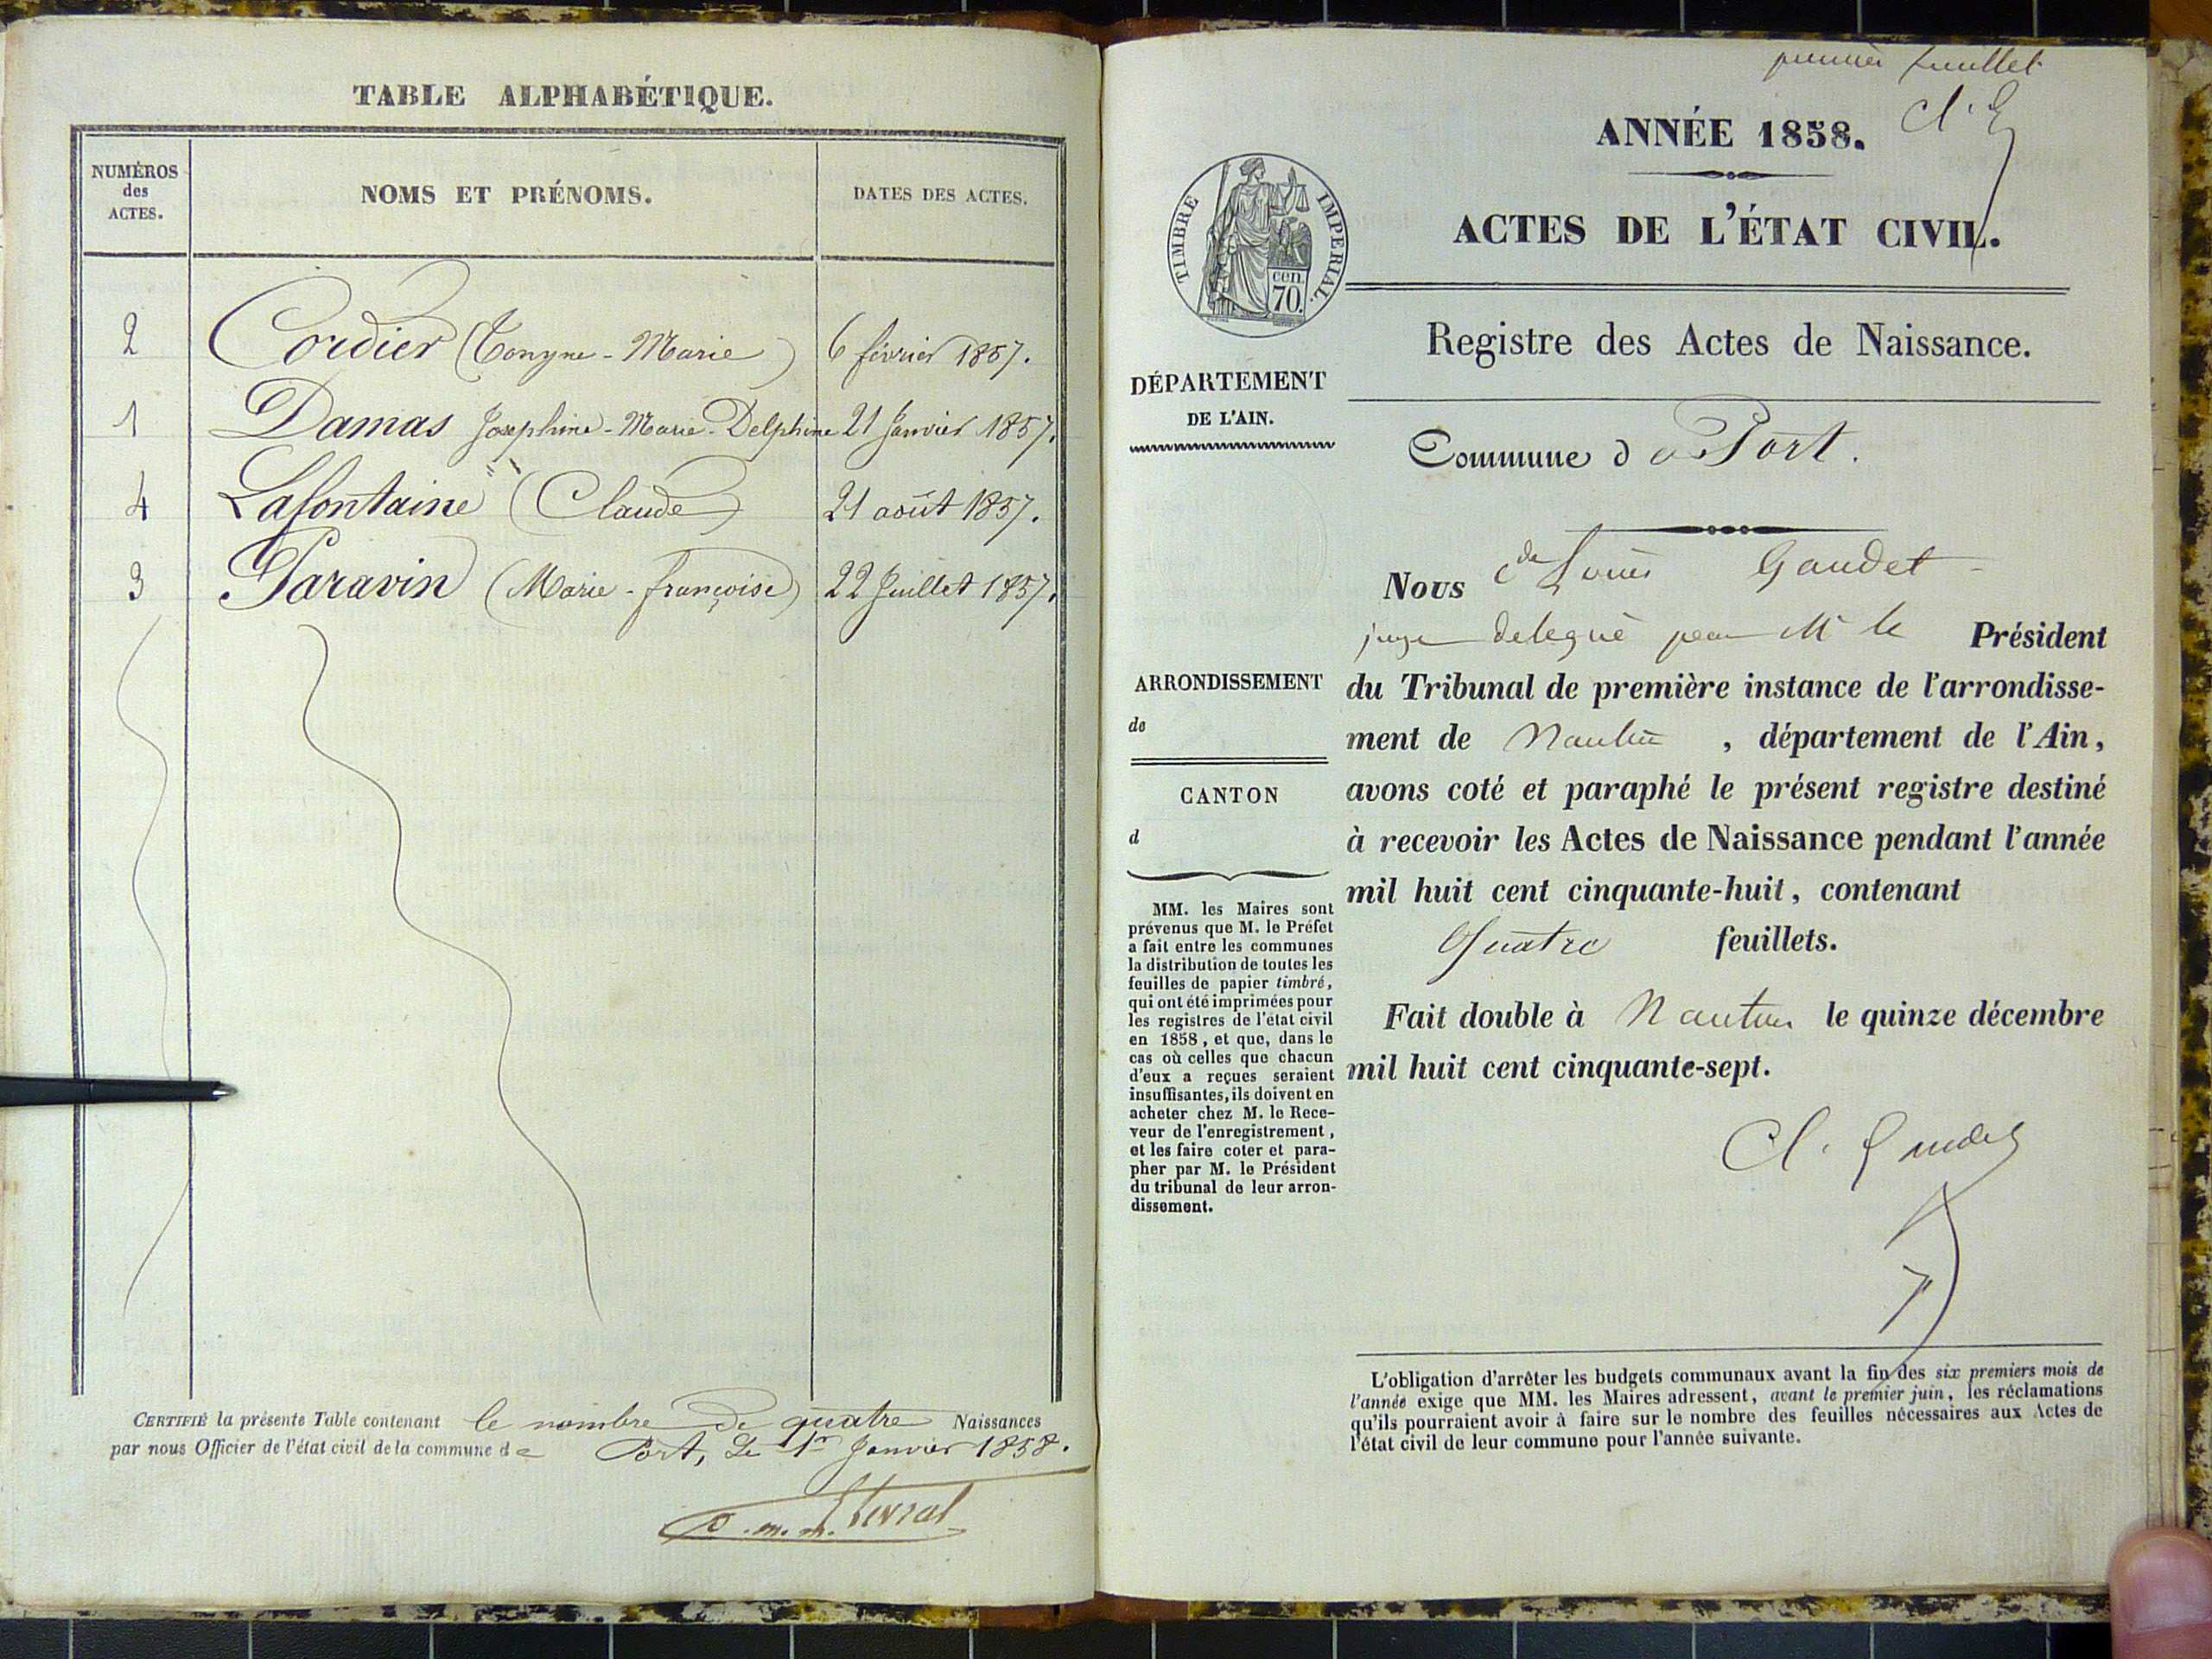 TABLE ALPHABÉTIQUE.
NUMÉROS
des
ACTES.
NOMS ET PRÉNOMS.
DATES DES ACTES.
2 Cordier (Tongne-Marie) 6 février 1857.
1 Damas Joséphine-Marie-Delphine 21 Janvier 1857.
4 Lafontaine (Claude) 21 août 1857.
3 Paravin (Marie-françoise) 22 Juillet 1857.
CERTIFIÉ la présente Table contenant le nombre de quatre Naissances
par nous Officier de l'état civil de la commune de Port, Le 1er Janvier 1858.
premier feuillet
ANNÉE 1858.
ACTES DE L'ÉTAT CIVIL.
TIMBRE IMPERIAL.
cen.
70.
Registre des Actes de Naissance.
DÉPARTEMENT
DE L'AIN.
Commune de Port.
Nous Louis Gaudet
juge délegué par Mr le Président
ARRONDISSEMENT
de
du Tribunal de première instance de l'arrondisse-
ment de Nantua, département de l'Ain,
CANTON
d
avons coté et paraphé le présent registre destiné
à recevoir les Actes de Naissance pendant l'année
mil huit cent cinquante-huit, contenant
Quatre feuillets.
Fait double à Nantua le quinze décembre
mil huit cent cinquante-sept.
Cl. Gaudet
MM. les Maires sont
prévenus que M. le Préfet
a fait entre les communes
la distribution de toutes les
feuilles de papier timbré,
qui ont été imprimées pour
les registres de l'état civil
en 1858, et que, dans le
cas où celles que chacun
d'eux a reçues seraient
insuffisantes, ils doivent en
acheter chez M. le Rece-
veur de l'enregistrement,
et les faire coter et para-
pher par M. le Président
du tribunal de leur arron-
dissement.
L'obligation d'arrêter les budgets communaux avant la fin des six premiers mois de
l'année exige que MM. les Maires adressent, avant le premier juin, les réclamations
qu'ils pourraient avoir à faire sur le nombre des feuilles nécessaires aux Actes de
l'état civil de leur commune pour l'année suivante.